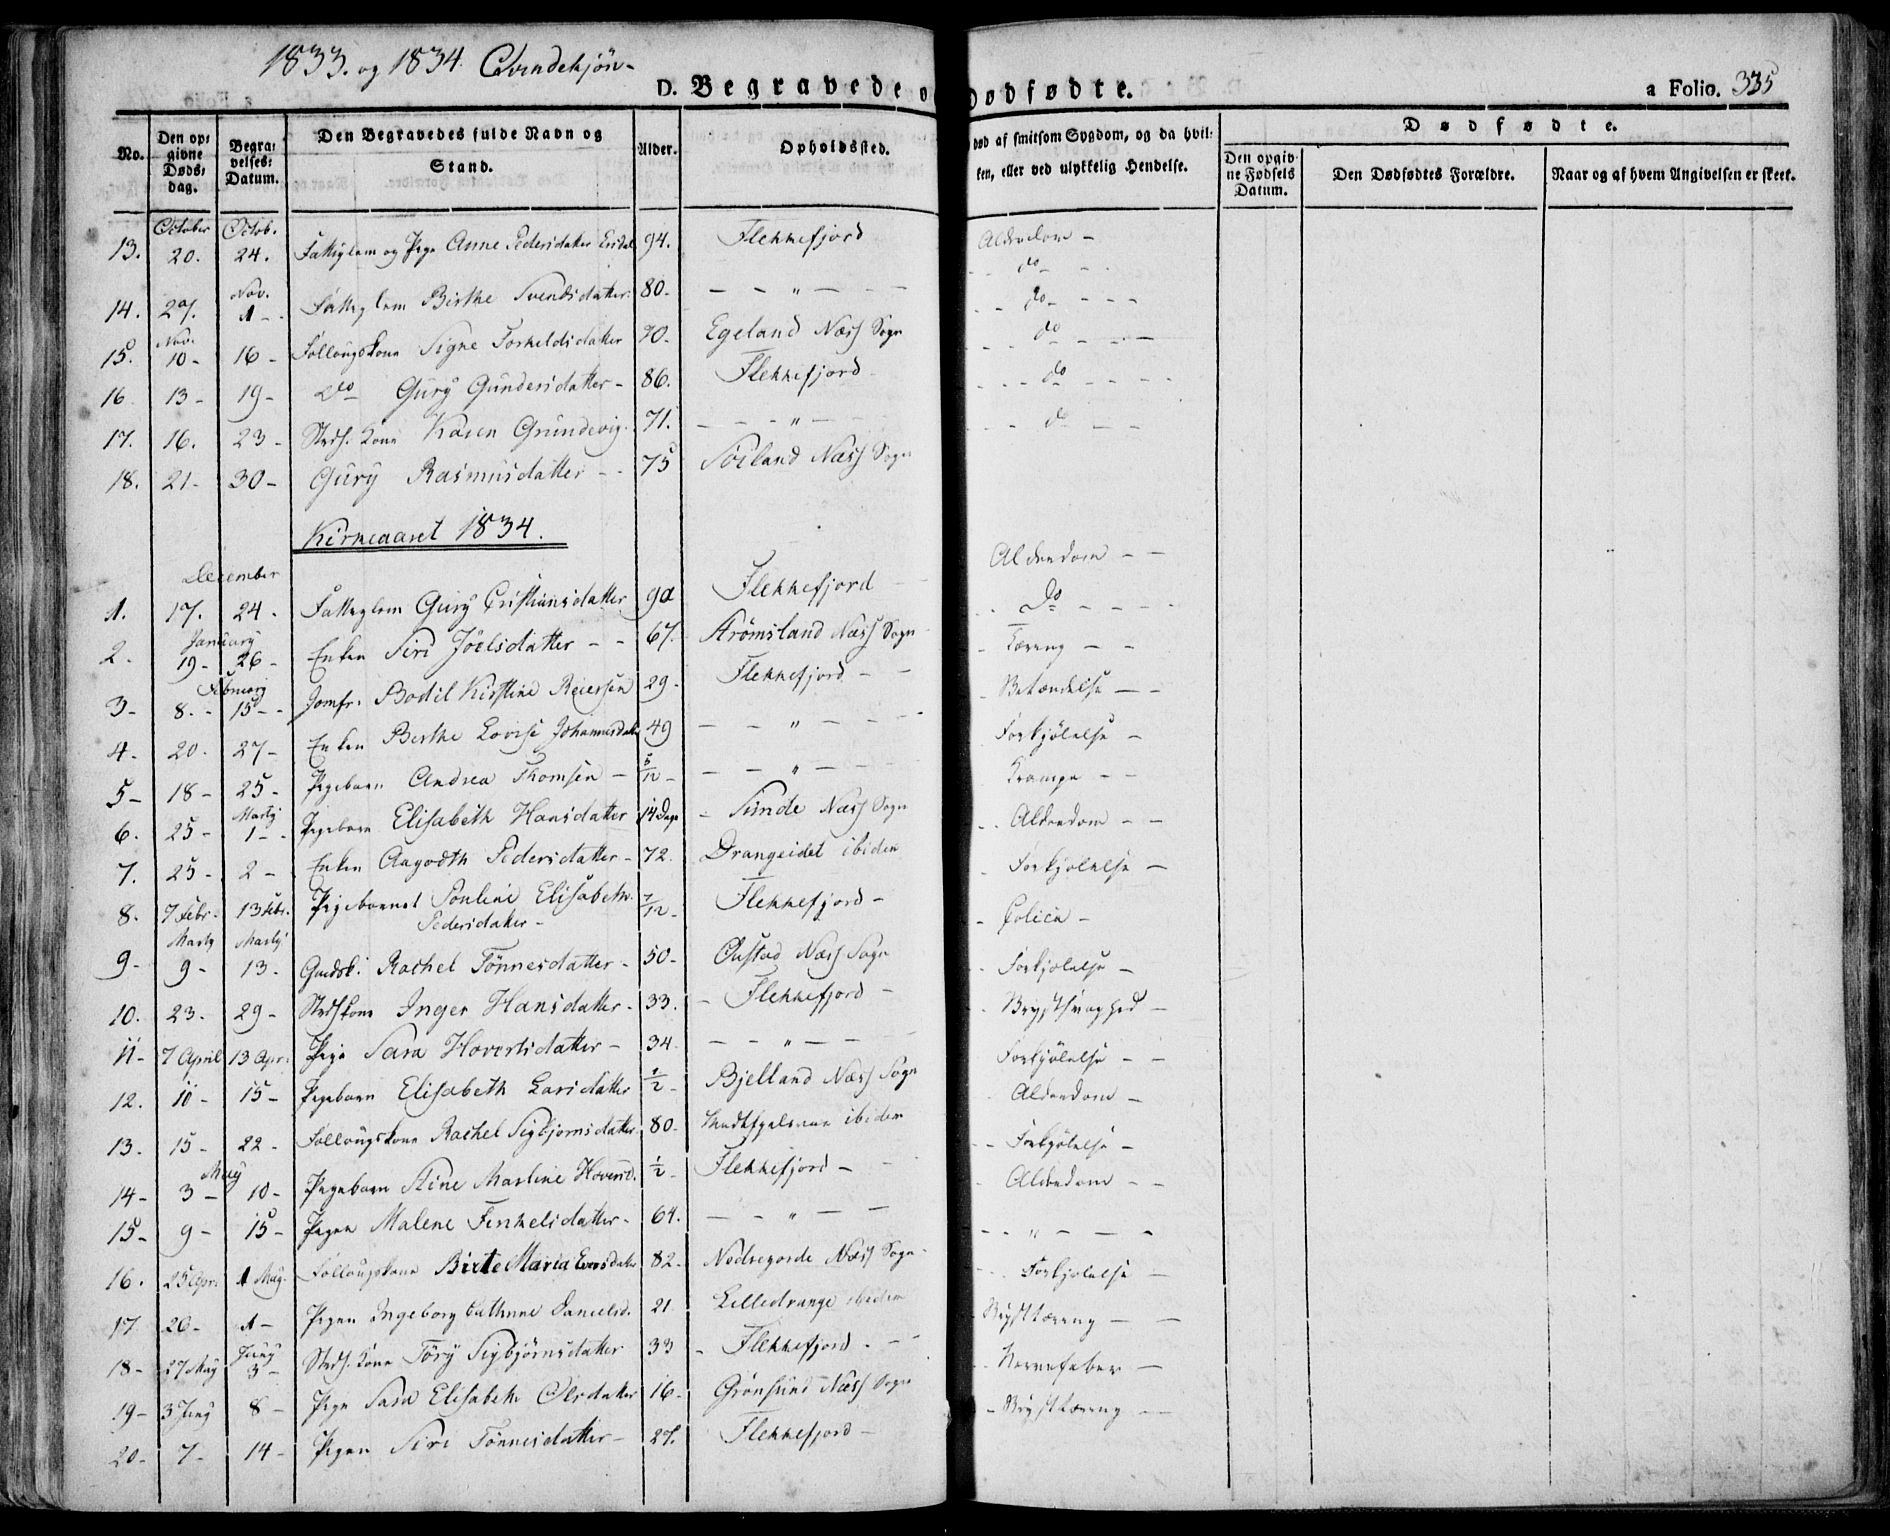 1833. og 1834. Qvindekjön-
D. Begravede og Dödfödte. a Folio. 335
No. Den opgivne Döds-dag. Begravelses-Datum. Den Begravedes fulde Navn og Stand. Alder. Opholdssted. Död af smitsom Sygdom, og da hvilken, eller ved ulykkelig Hendelse. Dödfödte.
Den opgivne Födsels Datum. Den Dödfödtes Forældre. Naar og af hvem Angivelsen er skeet.
October Octob.
13. 20. 24. Fattiglem og Pige Anne Pedersdatter 94. Flekkefjord Alderdom -
Nov.
14. 27. 1 - Fattiglem Birthe Svendsdatter. 80. - - " - - do - -
Nov.
15. 10 - 16 - Follougskone Signe Torkeldsdatter 70. Egeland Næss Sogn do - - -
16 13 - 19 - do Gury Gundersdatter - 86. Flekkefjord do - - -
17. 16. 23 - Kone Karen Grundevig. 71. - - " - do - - -
18. 21 - 30 - Gury Rasmusdatter - - 75 Söiland Næss Sogn do - -
Kirkeaaret 1834.
December
1. 17. 24. Fattiglem Gury Cristiansdatter 90 Flekkefjord Alderdom - -
January
2. 19 - 26 - Enken Siri Joelsdatter - - 67. Strömsland Næss Sogn Do - - -
February
3 - 8. - 15 - Jomfr. Bodil Kirstine Reiersen 29 - Flekkefjord - - Tæring - -
4. 20. 27 - Enken Berthe Lovise Johannesdatter 49 - - " - - Betændelse - -
5 - 18 - 25 - Pigebarn Andrea Thomsen - 5/12 - - - " - - Forkjölelse -
Marty
6. 25 - 1 - Pigebarn Elisabeth Hansdatter 14 Dage - Sunde Næss Sogn Krampe - -
7. 25 - 2 - Enken Aagodth Pedersdatter - 72. Drangeidet ibidem Alderdom - -
8. 7 Febr - 13 Febr. Pigebarnet Pouline Elisabeth Pedersdatter - 7/12 - Flekkefjord - Forkjölelse -
Marty Marty
9 - 9 - 13 - Rachel Tönnesdatter - 50 - Oustad Næss Sogn - Colica -
10. 23. 29 - Inger Hansdatter - 33. - Flekkefjord - Forkjölelse -
11 - 7 April 13 Apr. Pige Sara Hovertsdatter - 34 - - " - - Brystsvaghed -
12. 11 - 15 - Pigebarn Elisabeth Larsdatter 1/2 - Bjelland Næss Sogn Forkjölelse - -
13. 15 - 22 - Follougskone Rachel Sigbjornsdatter 80 - ibidem Alderdom -
May
14 - 3 - 10 - Pigebarn Stine Martine Hoversd. 1/2 - Flekkefjord - - Forkjölelse -
15 - 9 - 15 - Pigen Malene Tenkelsdatter - 64. - - " - - Alderdom - -
16. 25 Apr. 1 May. Follougskone Birte Maria Eversdatter 82 - Nedregorde Næss Sogn - - - " - - -
17 26 - 1 - Pigen Ingeborg Cathrine Danielsd. 21 Lilledrange ibidem Forkjölelse -
Juny
18 - 27 May 3 - Kone Töry Sigbjörnsdatter 33 - Flekkefjord - - Brysttæring - -
19 - 3 Juny 8 - Pige Sara Elisabeth Olsdatter 16 - Grönsund Næss Sogn Nervefeber -
20 - 7 - 14 - Pigen Siri Tönnesdatter - 27. Flekkefjord - - Brysttæring -